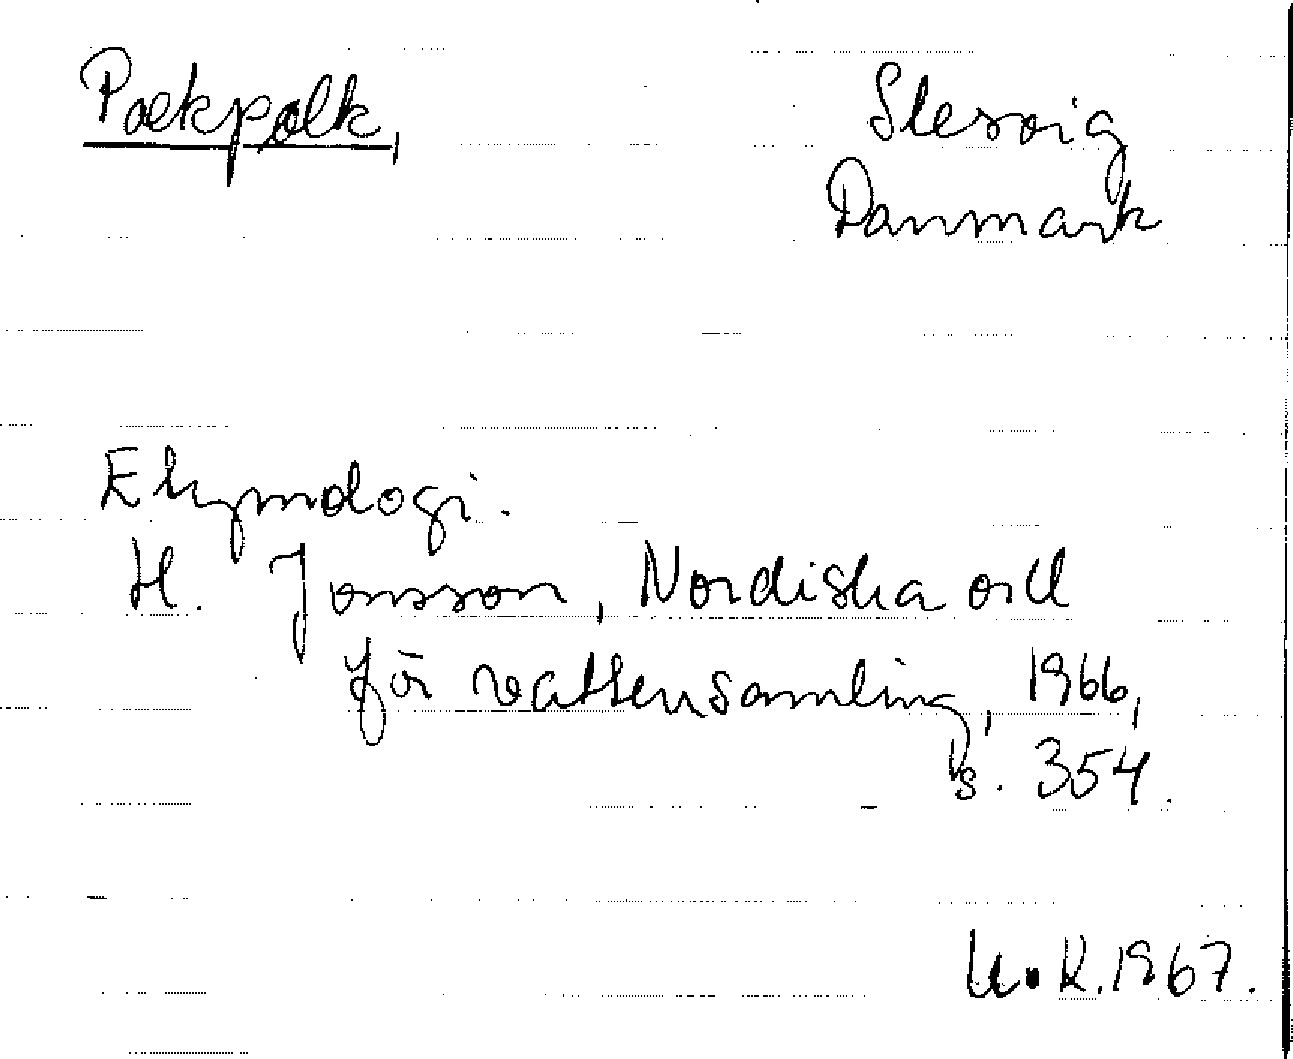 Paekpølk,
Slesvig
Danmark
Etymologi.
H. Jonsson, Nordiska ord
för vattensamling, 1966,
s. 354.
U.K. 1967.